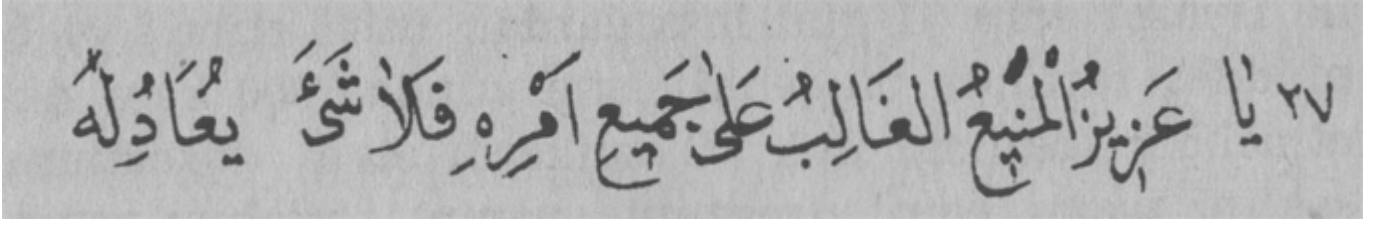 ٢٧ يَا عَزِيزُ الْمَنِيعُ الغَالِبُ عَلىٰ جَمِيعِ اَمْرِهِ فَلاَ شَئَ يُعَادِلُهُ